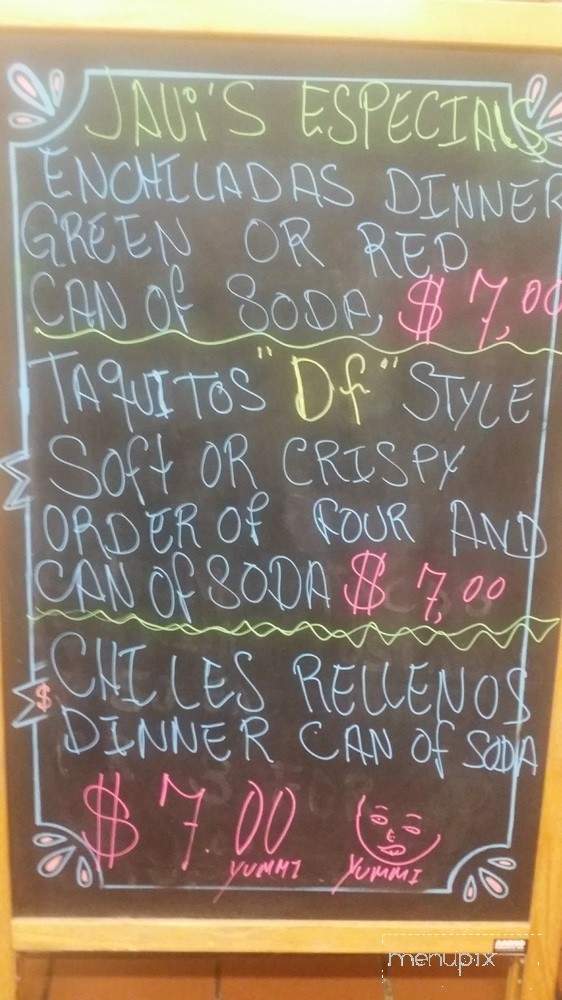 JAVI'S ESPECIALS
ENCHILADAS DINNER
GREEN OR RED
CAN OF SODA, $7,00
TAQUITOS "DF" STYLE
SOFT OR CRISPY
ORDER OF FOUR AND
CAN OF SODA $7,00
$ CHILES RELLENOS
DINNER CAN OF SODA
$7.00
YUMMI YUMMI
menupix